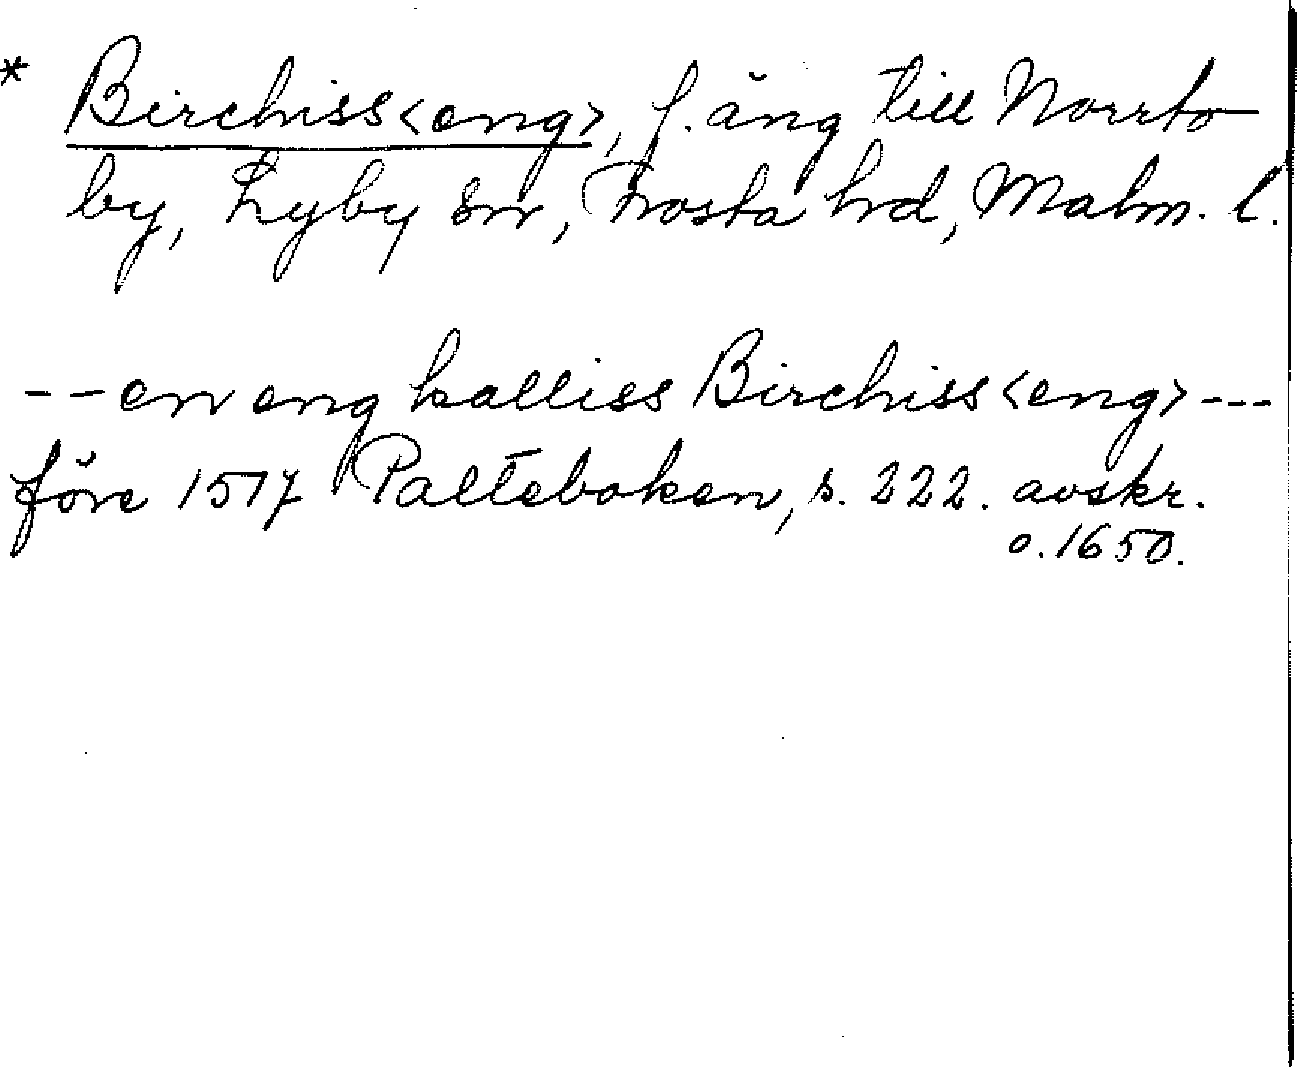 * Birchiss<eng>, f. äng till Norrto
by, Lyby sn, Frosta hd, Malm. l.
-- en eng kalliss Birchiss<eng> ---
före 1517 Palteboken, s. 222. avskr.
o. 1650.